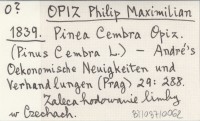 O? OPIZ Philip Maximilian
1839. Pinea Cembra Opiz.
(Pinus Cembra L.) — André's
Oekonomische Neuigkeiten und
Verhandlungen (Prag) 29: 288.
Zaleca hodowanie limby
w Czechach.